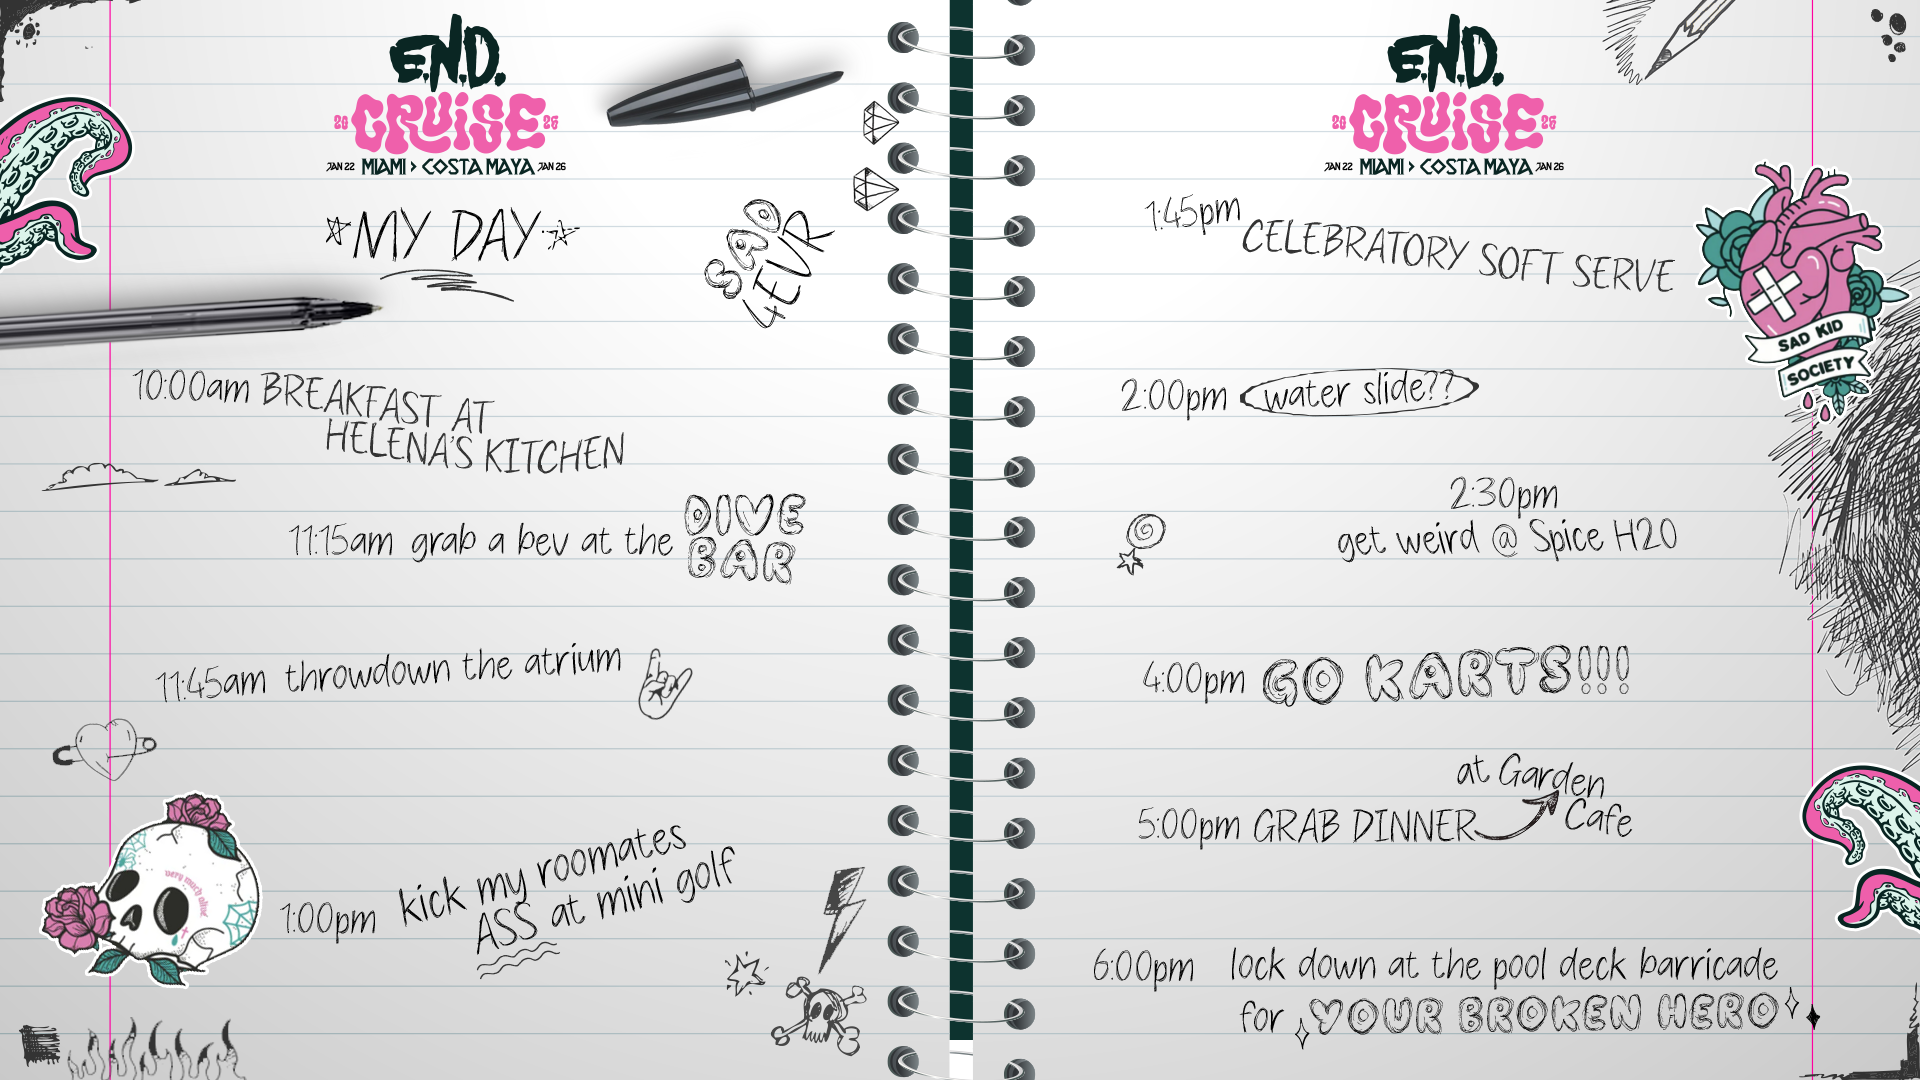 E.N.D.
20 CRUISE 26
JAN 22 MIAMI > COSTA MAYA JAN 26
MY DAY
SAD
4EVR
10:00am BREAKFAST AT
HELENA'S KITCHEN
11:15am grab a bev at the DIVE
BAR
11:45am throwdown the atrium
very much alive
1:00pm kick my roomates
ASS at mini golf
E.N.D.
20 CRUISE 26
JAN 22 MIAMI > COSTA MAYA JAN 26
1:45pm CELEBRATORY SOFT SERVE
SAD KID
SOCIETY
2:00pm water slide??
2:30pm
get weird @ Spice H20
4:00pm GO KARTS!!!
5:00pm GRAB DINNER at Garden
Cafe
6:00pm lock down at the pool deck barricade
for YOUR BROKEN HERO